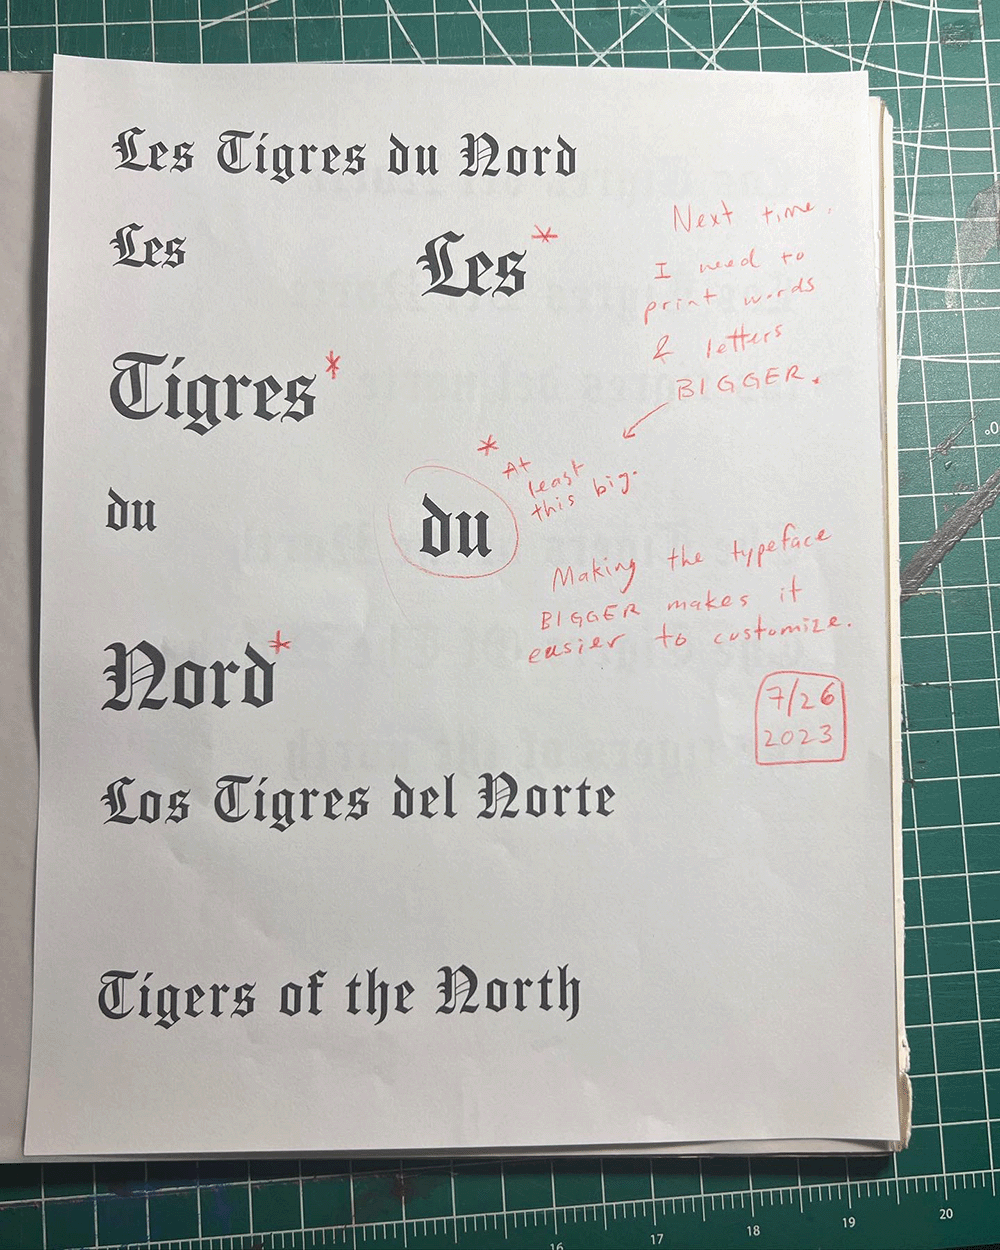 Les Tigres du Nord
Les
Les*
Next time,
I need to
print words
& letters
BIGGER.
Tigres*
* At
least
this big.
du
du
Making the typeface
BIGGER makes it
easier to customize.
Nord*
7/26
2023
Los Tigres del Norte
Tigers of the North
16 17 18 19 20